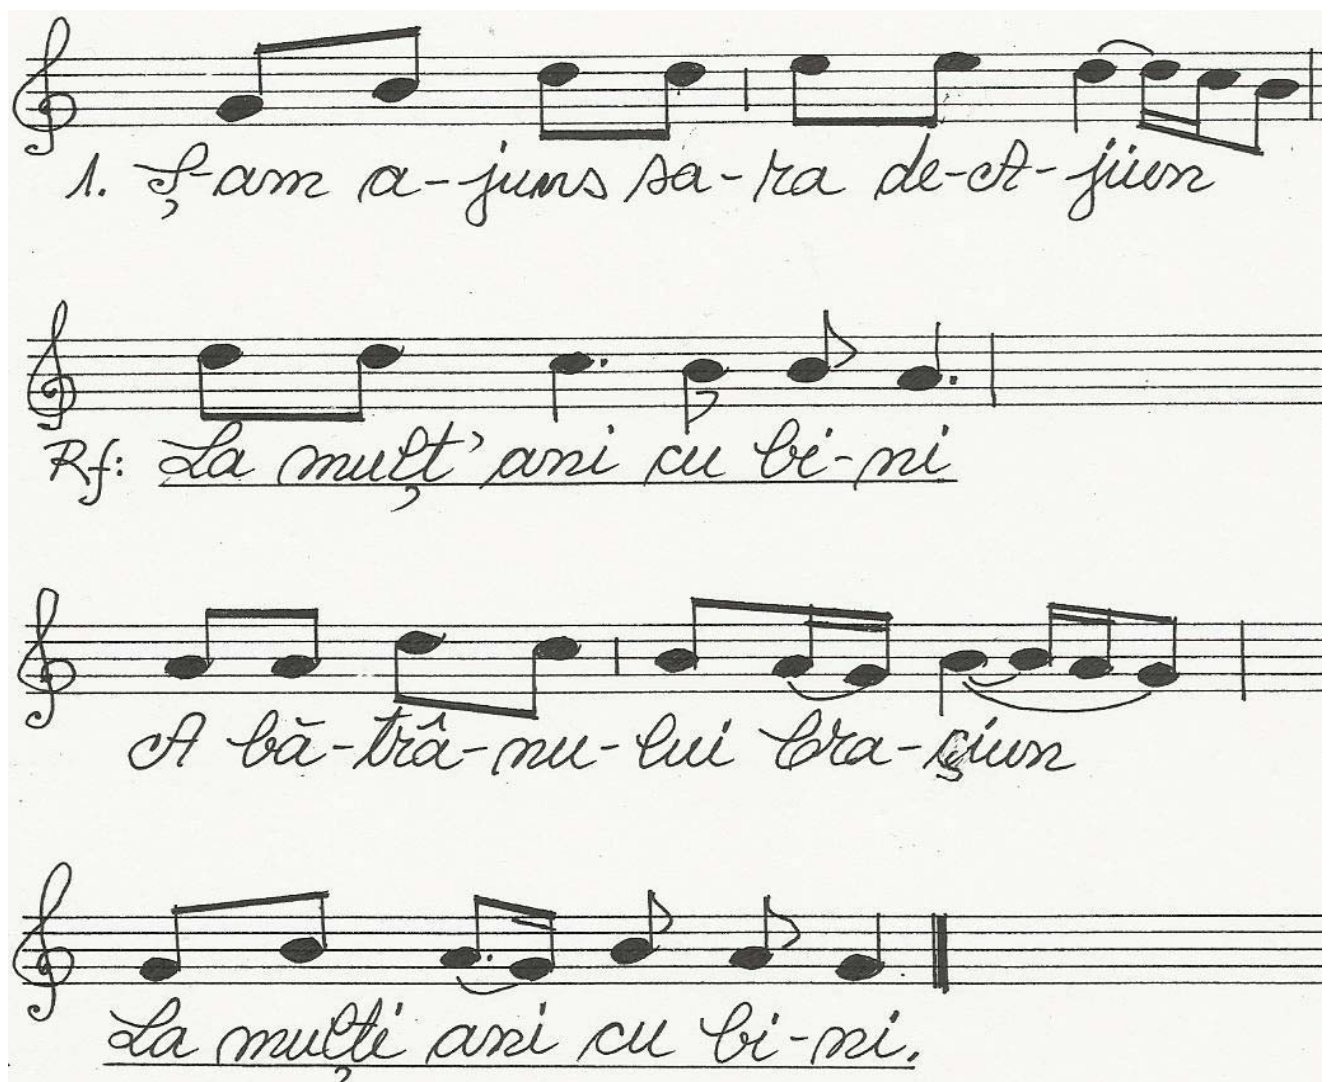 1. Ș-am a-juns sa-ra de-A-jiun
Rf: La mulț' ani cu bi-ni
A bă-trâ-nu-lui Cra-șiun
La mulți ani cu bi-ni.